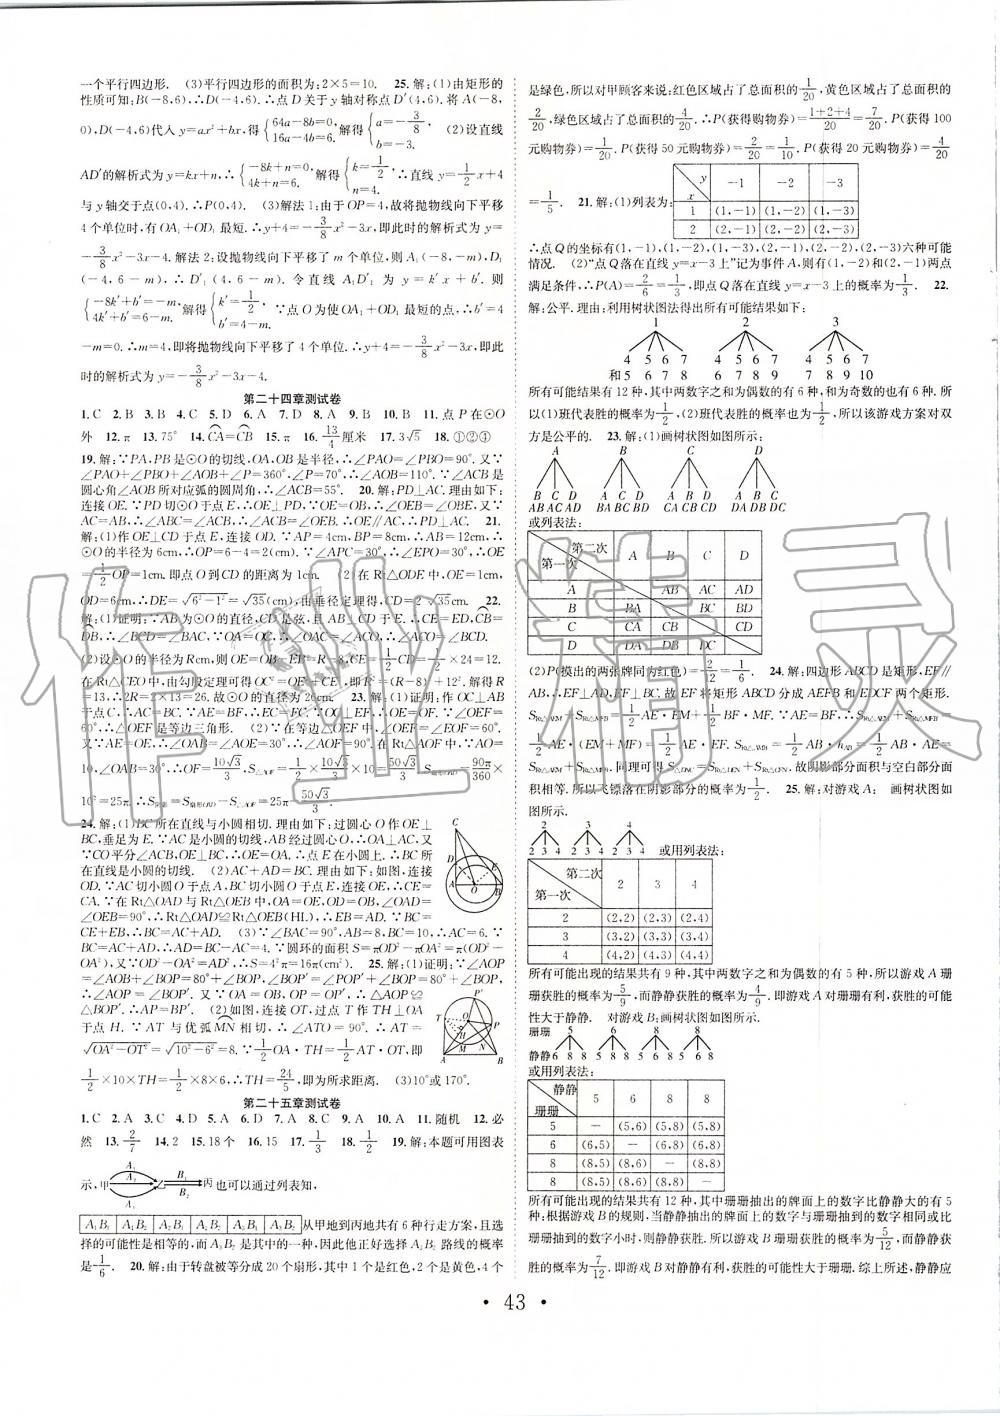 一个平行四边形. (3)平行四边形的面积为:2×5=10. 25. 解:(1)由矩形的
性质可知:B(-8,6),∴D(-4,6).∴点D关于y轴对称点D′(4,6).将A(-8,
0),D(-4,6)代入y=ax²+bx,得{64a-8b=0, 16a-4b=6. 解得{a=-3/8, b=-3. (2)设直线
AD′的解析式为y=kx+n,∴{-8k+n=0, 4k+n=6. 解得{k=1/2, n=4. ∴直线y=1/2x+4
与y轴交于点(0,4).∴P(0,4). (3)解法1:由于OP=4,故将抛物线向下平移
4个单位时,有OA₁+OD₁最短.∴y+4=-3/8x²-3x,即此时的解析式为y=
-3/8x²-3x-4. 解法2:设抛物线向下平移了m个单位,则A₁(-8,-m),D₁
(-4,6-m),∴D₁′(4,6-m).令直线A₁D₁′为y=k′x+b′.则
{-8k′+b′=-m, 4k′+b′=6-m. 解得{k′=1/2, b′=4-m. ∵点O为使OA₁+OD₁最短的点,∴b′=4
-m=0.∴m=4,即将抛物线向下平移了4个单位.∴y+4=-3/8x²-3x,即此
时的解析式为y=-3/8x²-3x-4.
第二十四章测试卷
1. C 2. B 3. B 4. C 5. D 6. A 7. D 8. A 9. B 10. B 11. 点P在⊙O
外 12. π 13. 75° 14. CA=CB 15. π 16. 13/4厘米 17. 3√5 18. ①②④
19. 解:∵PA,PB是⊙O的切线,OA,OB是半径,∴∠PAO=∠PBO=90°.又∵
∠PAO+∠PBO+∠AOB+∠P=360°,∠P=70°,∴∠AOB=110°.∵∠ACB是
圆心角∠AOB所对应弧的圆周角,∴∠ACB=55°. 20. 解:PD⊥AC.理由如下:
连接OE.∵PD切⊙O于点E,∴OE⊥PD,∵OE=OB,∴∠OEB=∠OBE.又∵
AC=AB,∴∠ABC=∠ACB,∴∠ACB=∠OEB.∴OE∥AC,∴PD⊥AC. 21.
解:(1)作OE⊥CD于点E,连接OD.∵AP=4cm,BP=8cm,∴AB=12cm,∴
⊙O的半径为6cm,∴OP=6-4=2(cm).∵∠APC=30°,∴∠EPO=30°,∴OE=
1/2OP=1cm.即点O到CD的距离为1cm. (2)在Rt△ODE中,OE=1cm,
OD=6cm,∴DE=√6²-1²=√35(cm),由垂径定理得,CD=2√35cm. 22.
解:(1)证明:∵AD为⊙O的直径,CD是弦,且AB⊥CD于E,∴CE=ED,CB=
DB,∴∠BCD=∠BAC.∵OA=OC,∴∠OAC=∠OCA,∴∠ACO=∠BCD.
(2)设⊙O的半径为Rcm,则OE=OB-EB=(R-8)cm,CE=1/2CD=1/2×24=12.
在Rt△CEO中,由勾股定理可得OC²=OE²+CE²,即R²=(R-8)²+12²,解得R
=13,∴2R=2×13=26,故⊙O的直径为26cm. 23. 解:(1)证明:作OC⊥AB
于点C,∴AC=BC.∵AE=BF,∴EC=FC.∵OC⊥EF,∴OE=OF.∵∠EOF
=60°,∴△OEF是等边三角形. (2)∵在等边△OEF中,∠OEF=∠EOF=60°,
又∵AE=OE,∴∠A=∠AOE=30°,∴∠AOF=90°.在Rt△AOF中,∵AO=
10,∠OAB=30°,∴OF=10√3/3,∴S△AOF=1/2×10√3/3×10=50√3/3,S扇形AOD=90π/360×
10²=25π.∴S阴影=S扇形(OD)-S△AOF=25π-50√3/3.
24. 解:(1)BC所在直线与小圆相切.理由如下:过圆心O作OE⊥
BC,垂足为E.∵AC是小圆的切线,AB经过圆心O,∴OA⊥AC.又
∵CO平分∠ACB,OE⊥BC,∴OE=OA,∴点E在小圆上.∴BC所
在直线是小圆的切线. (2)AC+AD=BC.理由如下:如图,连接
OD.∵AC切小圆O于点A,BC切小圆O于点E,连接OE,∴CE=
CA.∵在Rt△OAD与Rt△OEB中,OA=OE,OD=OB,∠OAD=
∠OEB=90°,∴Rt△OAD≌Rt△OEB(HL),∴EB=AD.∵BC=
CE+EB,∴BC=AC+AD. (3)∵∠BAC=90°,AB=8,BC=10,∴AC=6.∵
BC=AC+AD,∴AD=BC-AC=4.∵圆环的面积S=πOD²-πOA²=π(OD²-
OA²),又∵OD²-OA²=AD²,∴S=4²π=16π(cm²). 25. 解:(1)证明:∵∠AOP=
∠AOB+∠BOP=80°+∠BOP,∠BOP′=∠POP′+∠BOP=80°+∠BOP,
∴∠AOP=∠BOP′.又∵OA=OB,OP=OP′,∴△AOP≌
△BOP′.∴AP=BP′. (2)如图,连接OT,过点T作TH⊥OA
于点H.∵AT与优弧MN相切,∴∠ATO=90°,∴AT=
√OA²-OT²=√10²-6²=8.∵1/2OA·TH=1/2AT·OT,
即1/2×10×TH=1/2×8×6,∴TH=24/5,即为所求距离. (3)10°或170°.
第二十五章测试卷
1. C 2. A 3. D 4. B 5. A 6. D 7. A 8. C 9. A 10. A 11. 随机 12. 必
然 13. 2/7 14. 2 15. 18个 16. 15 17. 1/3 18. 1/2 19. 解:本题可用图表
示,甲 A₁ A₂ A₃ 乙 B₁ B₂ 丙 也可以通过列表知,
A₁B₁ A₁B₂ A₂B₁ A₂B₂ A₃B₁ A₃B₂ 从甲地到丙地共有6种行走方案,且选
择的可能性是相等的,而A₃B₂是其中的一种,因此他正好选择A₃B₂路线的概率
是1/6. 20. 解:由于转盘被等分成20个扇形,其中1个是红色,2个是黄色,4个
是绿色,所以对甲顾客来说:红色区域占了总面积的1/20,黄色区域占了总面积的
2/20,绿色区域占了总面积的4/20.∴P(获得购物券)=1+2+4/20=7/20.P(获得100
元购物券)=1/20.P(获得50元购物券)=2/20=1/10.P(获得20元购物券)=4/20
=1/5. 21. 解:(1)列表为:
x y -1 -2 -3
1 (1,-1) (1,-2) (1,-3)
2 (2,-1) (2,-2) (2,-3)
∴点Q的坐标有(1,-1),(1,-2),(1,-3),(2,-1),(2,-2),(2,-3)六种可能
情况. (2)“点Q落在直线y=x-3上”记为事件A,则有(1,-2)和(2,-1)两点
满足条件.∴P(A)=2/6=1/3,即点Q落在直线y=x-3上的概率为1/3. 22.
解:公平.理由:利用树状图法得出所有可能结果如下:
1 2 3
4 5 6 7 4 5 6 7 4 5 6 7
和5 6 7 8 6 7 8 9 7 8 9 10
所有可能结果有12种,其中两数字之和为偶数的有6种,和为奇数的也有6种.
所以(1)班代表胜的概率为1/2,(2)班代表胜的概率为1/2,所以该游戏方案对双
方是公平的. 23. 解:(1)画树状图如图所示:
A B C D
B C D A C D A B D A B C
AB AC AD BA BC BD CA CB CD DA DB DC
或列表法:
第一次 第二次 A B C D
A AB AC AD
B BA BC BD
C CA CB CD
D DA DB DC
(2)P(摸出的两张牌同为红色)=2/12=1/6. 24. 解:四边形ABCD是矩形,EF∥
AB,∴EF⊥AD,EF⊥BC.故EF将矩形ABCD分成AEFB和EDCF两个矩形.
S Rt△AEM=S Rt△BMF=1/2AE·EM+1/2BF·MF.又∵AE=BF,∴S Rt△AEM+S Rt△BFM=1/2
AE·(EM+MF)=1/2AE·EF.S Rt△AMB=1/2AB·h AB=1/2AB·AE=
S Rt△AEM+S Rt△BFM.同理可得S△DNC=S Rt△DEN+S Rt△CFN.故阴影部分面积与空白部分面
积相等.所以飞镖落在阴影部分的概率为1/2. 25. 解:对游戏A: 画树状图如
图所示.
2 3 4
2 3 4 2 3 4 2 3 4 或用列表法:
第一次 第二次 2 3 4
2 (2,2) (2,3) (2,4)
3 (3,2) (3,3) (3,4)
4 (4,2) (4,3) (4,4)
所有可能出现的结果共有9种,其中两数字之和为偶数的有5种,所以游戏A珊
珊获胜的概率为5/9,而静静获胜的概率为4/9.即游戏A对珊珊有利,获胜的可能
性大于静静. 对游戏B:画树状图如图所示.
珊珊 5 6 8 8
静静6 8 8 5 8 8 5 6 8 5 6 8
或用列表法:
珊珊 静静 5 6 8 8
5 - (5,6) (5,8) (5,8)
6 (6,5) - (6,8) (6,8)
8 (8,5) (8,6) - (8,8)
8 (8,5) (8,6) (8,8) -
所有可能出现的结果共有12种,其中珊珊抽出的牌面上的数字比静静大的有5
种;根据游戏B的规则,当静静抽出的牌面上的数字与珊珊抽到的数字相同或比
珊珊抽到的数字小时,则静静获胜.所以游戏B珊珊获胜的概率为5/12,而静静获
胜的概率为7/12.即游戏B对静静有利,获胜的可能性大于珊珊.综上所述,静静应
· 43 ·
作业精灵